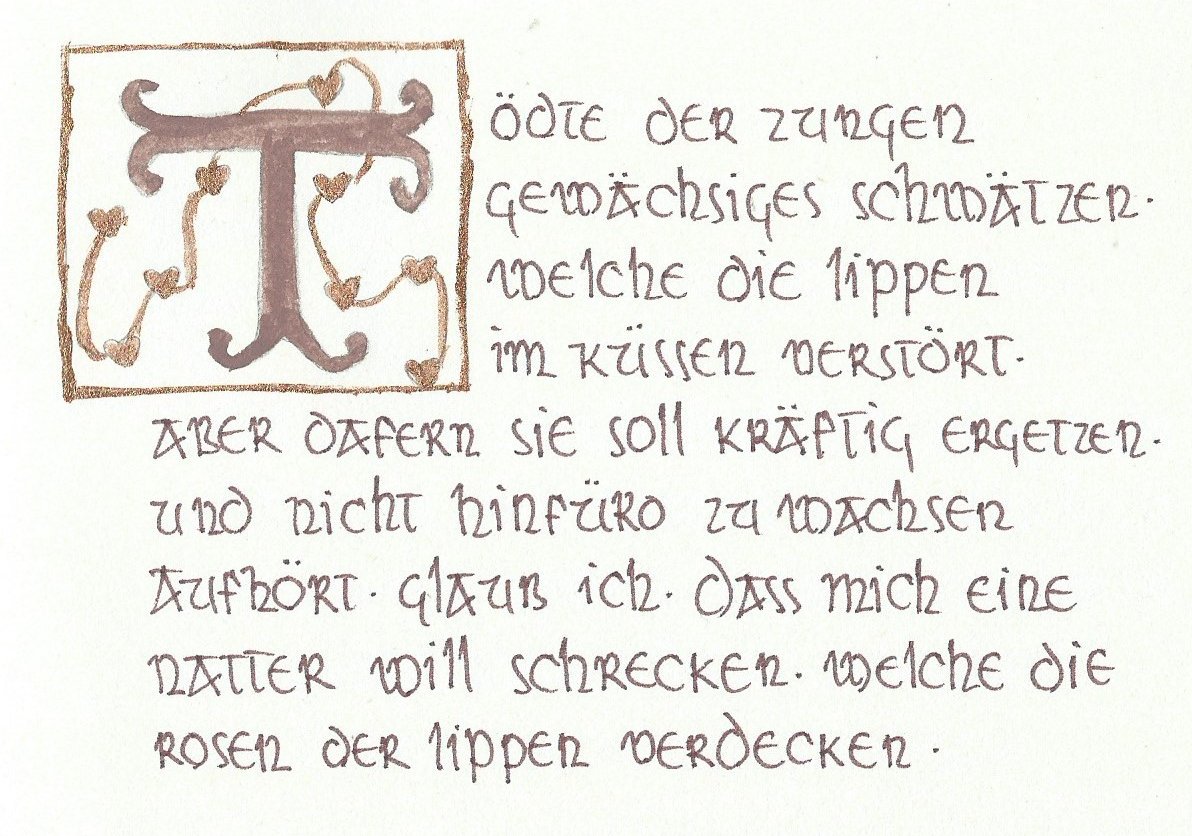 Tödte der zungen
gewächsiges schwätzen.
welche die lippen
im küssen verstört.
aber dafern sie soll kräftig ergetzen.
und nicht hinfüro zu wachsen
aufhört. glaub ich. dass mich eine
natter will schrecken. welche die
rosen der lippen verdecken.